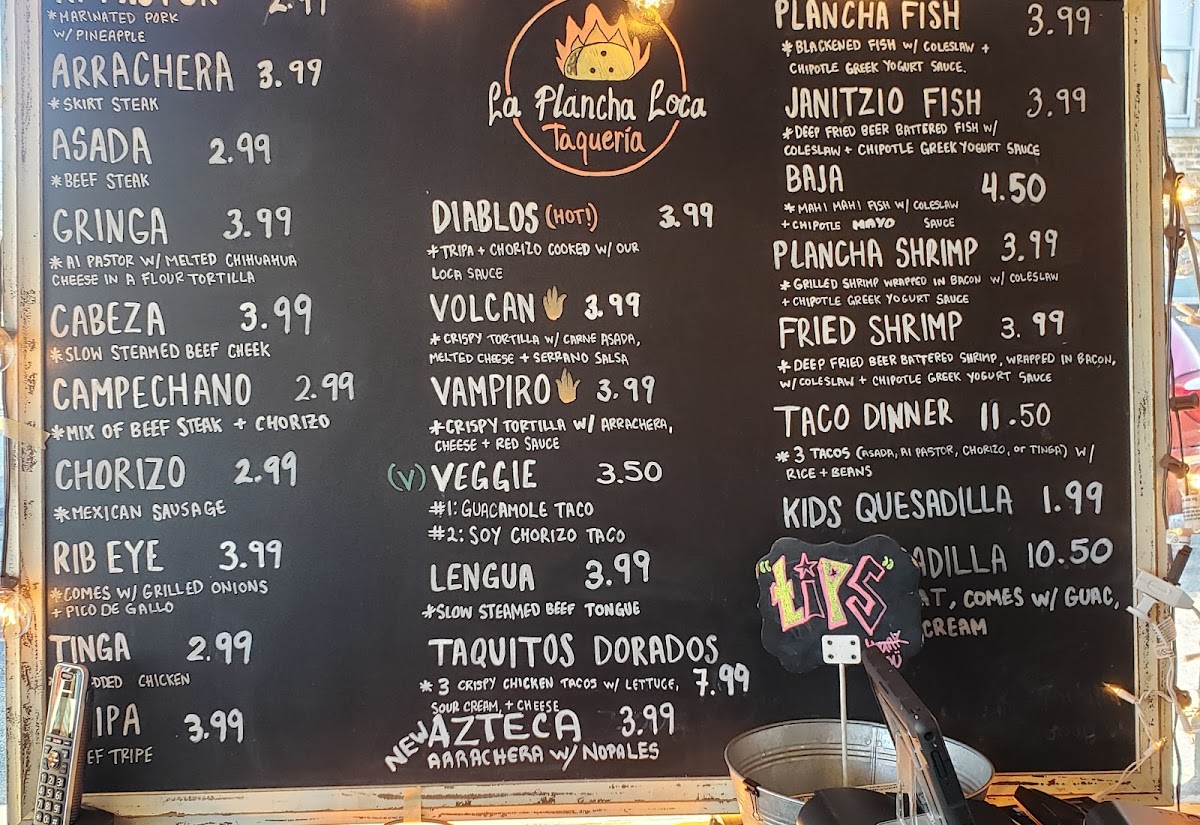 2.99
*MARINATED PORK
W/ PINEAPPLE
ARRACHERA 3.99
*SKIRT STEAK
ASADA 2.99
*BEEF STEAK
GRINGA 3.99
*Al PASTOR W/ MELTED CHIHUAHUA
CHEESE IN A FLOUR TORTILLA
CABEZA 3.99
*SLOW STEAMED BEEF CHEEK
CAMPECHANO 2.99
*MIX OF BEEF STEAK + CHORIZO
CHORIZO 2.99
*MEXICAN SAUSAGE
RIB EYE 3.99
*COMES W/ GRILLED ONIONS
+ PICO DE GALLO
TINGA 2.99
CHICKEN
3.99
TRIPE
La Plancha Loca
Taquería
DIABLOS (HOT!) 3.99
*TRIPA + CHORIZO COOKED W/ OUR
LOCA SAUCE
VOLCAN 3.99
*CRISPY TORTILLA W/ CARNE ASADA,
MELTED CHEESE + SERRANO SALSA
VAMPIRO 3.99
*CRISPY TORTILLA W/ ARRACHERA,
CHEESE + RED SAUCE
(V) VEGGIE 3.50
#1: GUACAMOLE TACO
#2: SOY CHORIZO TACO
LENGUA 3.99
*SLOW STEAMED BEEF TONGUE
TAQUITOS DORADOS
* 3 CRISPY CHICKEN TACOS W/ LETTUCE, 7.99
SOUR CREAM, + CHEESE
NEW AZTECA 3.99
ARRACHERA W/ NOPALES
PLANCHA FISH 3.99
*BLACKENED FISH W/ COLESLAW +
CHIPOTLE GREEK YOGURT SAUCE.
JANITZIO FISH 3.99
*DEEP FRIED BEER BATTERED FISH W/
COLESLAW + CHIPOTLE GREEK YOGURT SAUCE
BAJA 4.50
*MAHI MAHI FISH W/ COLESLAW
+ CHIPOTLE MAYO SAUCE
PLANCHA SHRIMP 3.99
*GRILLED SHRIMP WRAPPED IN BACON W/ COLESLAW
+ CHIPOTLE GREEK YOGURT SAUCE
FRIED SHRIMP 3.99
*DEEP FRIED BEER BATTERED SHRIMP, WRAPPED IN BACON,
W/ COLESLAW + CHIPOTLE GREEK YOGURT SAUCE
TACO DINNER 11.50
*3 TACOS (ASADA, Al PASTOR, CHORIZO, or TINGA) W/
RICE + BEANS
KIDS QUESADILLA 1.99
10.50
COMES W/ GUAC,
CREAM
"tiPS"